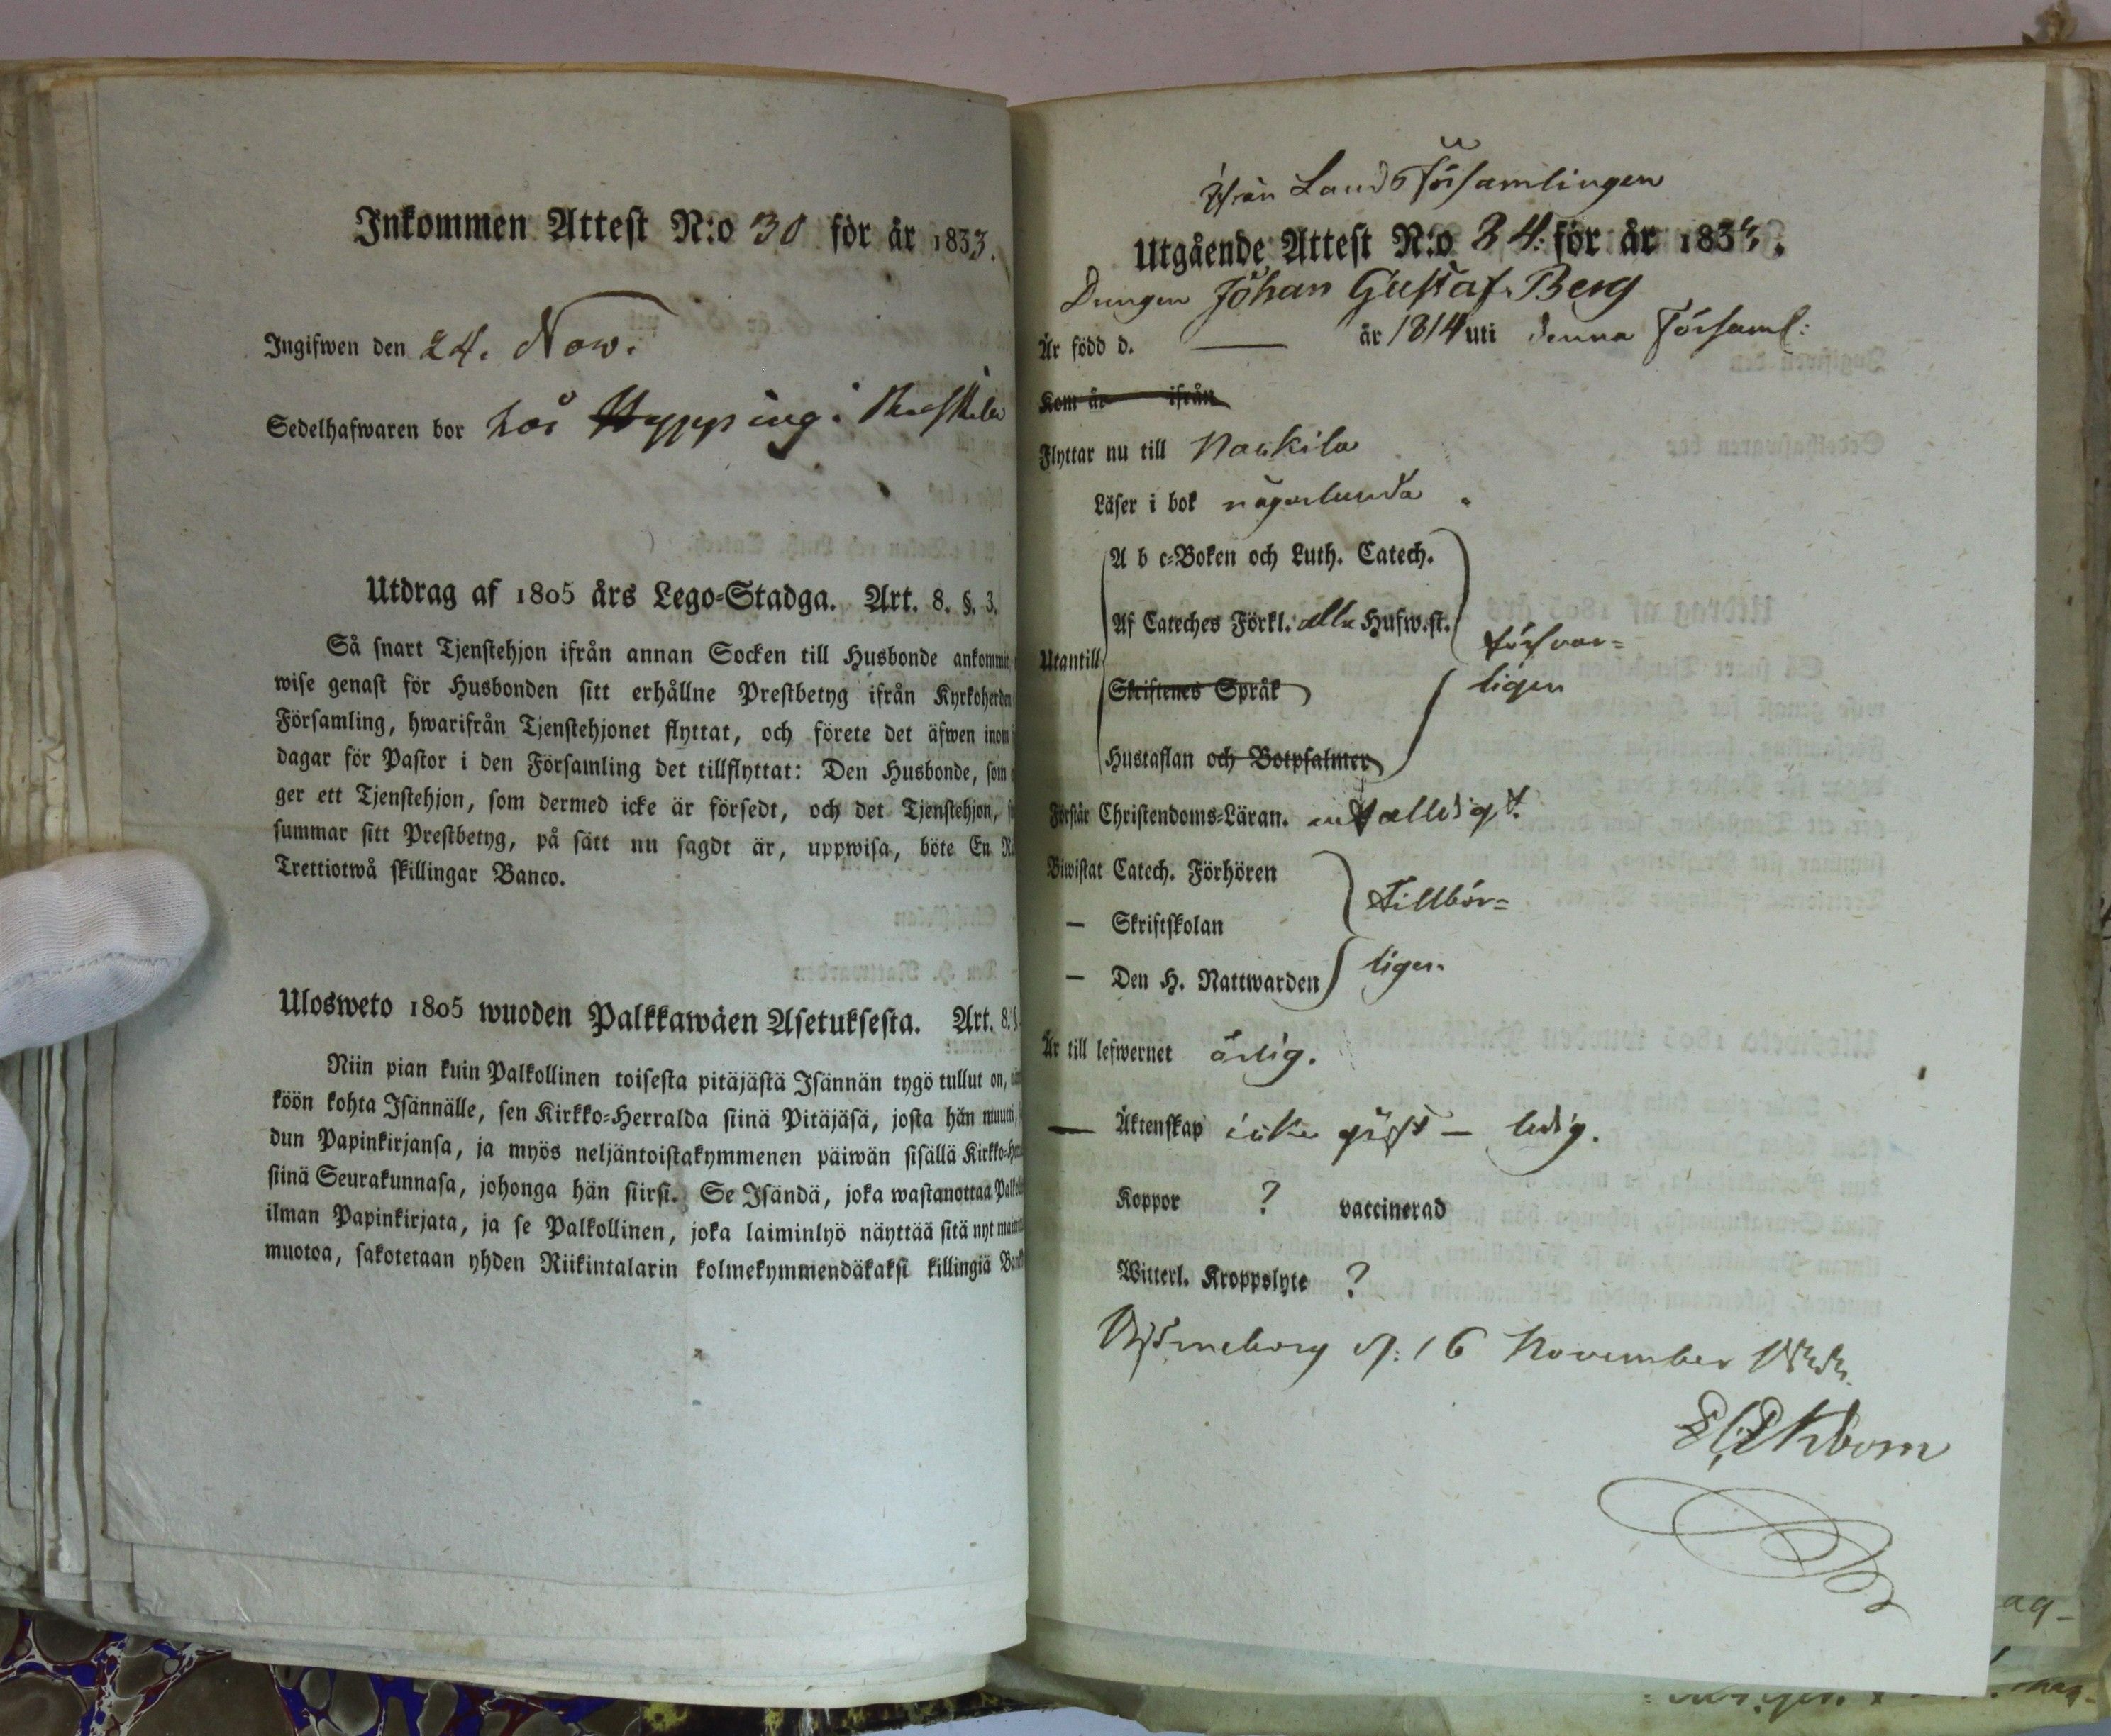 Inkommen Attest N:o 30 för år 1833.
Ingifwen den 24. Now.
Sedelhafwaren bor hos
Utdrag af 1805 års Lego-Stadga. Art. 8. §. 3.
Så snart Tjenstehjon ifrån annan Socken till Husbonde ankommit
wise genast för Husbonden sitt erhållne Prestbetyg ifrån Kyrkoherden
Församling, hwarifrån Tjenstehjonet flyttat, och förete det äfwen inom
dagar för Pastor i den Församling det tillflyttat: Den Husbonde, som
ger ett Tjenstehjon, som dermed icke är försedt, och det Tjenstehjon,
summar sitt Prestbetyg, på sätt nu sagdt är, uppwisa, böte En
Trettiotwå skillingar Banco.
Ulosweto 1805 wuoden Palkkawäen Asetuksesta. Art. 8. §
Niin pian kuin Palkollinen toisesta pitäjästä Isännän tygö tullut on,
köön kohta Isännälle, sen Kirkko-Herralda siinä Pitäjäsä, josta hän muutti,
dun Papinkirjansa, ja myös neljäntoistakymmenen päiwän sisällä Kirkko-
siinä Seurakunnasa, johonga hän siirsi. Se Isändä, joka wastanottaa
ilman Papinkirjata, ja se Palkollinen, joka laiminlyö näyttää sitä nyt
muotoa, sakotetaan yhden Riikintalarin kolmekymmendäkaksi killingiä
ifrån Lands Församlingen
Utgående Attest N:o 84. för år 183
Drengen Johan Gustaf Berg
Är född d. — år 1814 uti denna Församl:
Kom år ifrån
Flyttar nu till Nackila
Läser i bok någorlunda
A b c-Boken och Luth. Catech.
Af Cateches Förkl. alla Hufw.st.
försvar=
Utantill
Skriftenes Språk
ligen
Hustaflan och Botpsalmer
Förstår Christendoms-Läran. enfalldigt.
Biwistat Catech. Förhören
tillbör=
— Skriftskolan
— Den H. Nattwarden
ligen
Är till lefwernet ärlig.
— Äktenskap icke gift — ledig.
Koppor ? vaccinerad
Witterl. Kroppslyte ?
Björneborg d: 16 November
Ekbom